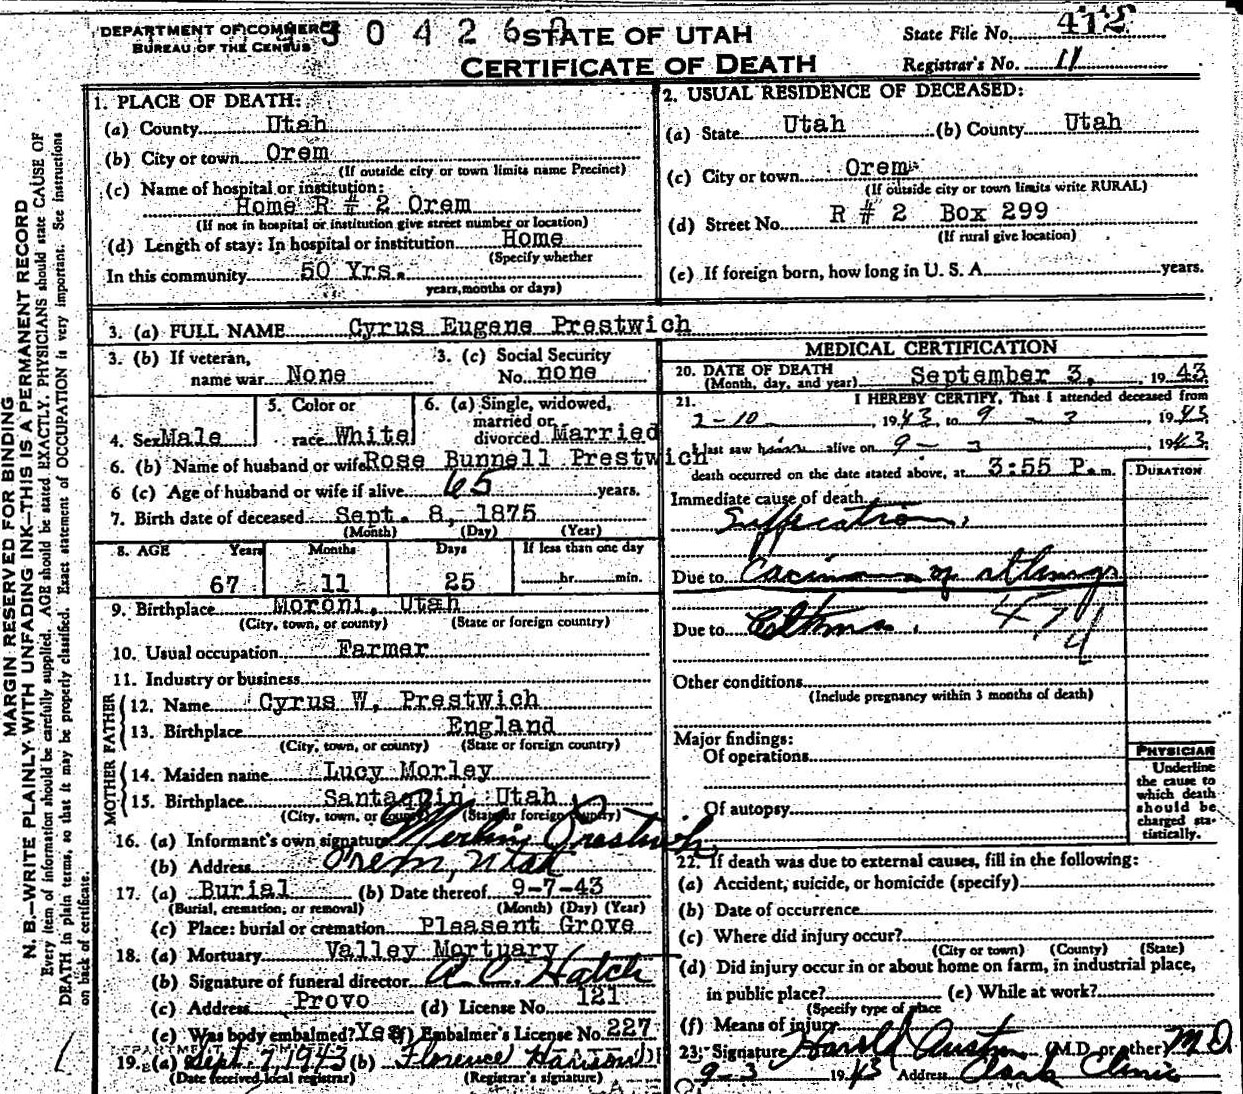 DEPARTMENT OF COMMERCE
BUREAU OF THE CENSUS
30426
STATE OF UTAH
CERTIFICATE OF DEATH
State File No. 412
Registrar's No. 11
MARGIN RESERVED FOR BINDING
N. B.—WRITE PLAINLY WITH UNFADING INK—THIS IS A PERMANENT RECORD
Every item of information should be carefully supplied. AGE should be stated EXACTLY. PHYSICIANS should state CAUSE OF
DEATH in plain terms, so that it may be properly classified. Exact statement of OCCUPATION is very important. See instructions
on back of certificate.
1. PLACE OF DEATH:
(a) County Utah
(b) City or town Orem
(If outside city or town limits name Precinct)
(c) Name of hospital or institution:
Home R # 2 Orem
(If not in hospital or institution give street number or location)
(d) Length of stay: In hospital or institution Home
(Specify whether
In this community 50 Yrs.
years, months or days)
2. USUAL RESIDENCE OF DECEASED:
(a) State Utah (b) County Utah
(c) City or town Orem
(If outside city or town limits write RURAL)
(d) Street No. R # 2 Box 299
(If rural give location)
(e) If foreign born, how long in U. S. A. years.
3. (a) FULL NAME Cyrus Eugene Prestwich
3. (b) If veteran,
name war None
3. (c) Social Security
No. none
4. Sex Male
5. Color or
race White
6. (a) Single, widowed,
married or
divorced Married
6. (b) Name of husband or wife Rose Bunnell Prestwich
6 (c) Age of husband or wife if alive 65 years.
7. Birth date of deceased Sept. 8, 1875
(Month) (Day) (Year)
8. AGE Years Months Days If less than one day
67 11 25 hr. min.
9. Birthplace Moroni, Utah
(City, town, or county) (State or foreign country)
10. Usual occupation Farmer
11. Industry or business
FATHER
12. Name Cyrus W. Prestwich
13. Birthplace England
(City, town, or county) (State or foreign country)
MOTHER
14. Maiden name Lucy Morley
15. Birthplace Santaquin Utah
(City, town, or county) (State or foreign country)
16. (a) Informant's own signature Prestwich
(b) Address Orem, Utah
17. (a) Burial (b) Date thereof 9-7-43
(Burial, cremation, or removal) (Month) (Day) (Year)
(c) Place: burial or cremation Pleasant Grove
18. (a) Mortuary Valley Mortuary
(b) Signature of funeral director A. C. Hatch
(c) Address Provo (d) License No. 121
(e) Was body embalmed? Yes (f) Embalmer's License No. 227
19. (a) Sept. 7, 1943 (b) Florence Harison
(Date received local registrar) (Registrar's signature)
MEDICAL CERTIFICATION
20. DATE OF DEATH
(Month, day, and year) September 3, 1943
21. I HEREBY CERTIFY, That I attended deceased from
2-10 1943, to 9 - 3 1943
I last saw him alive on 9 - 3 1943
death occurred on the date stated above, at 3:55 P. m.
DURATION
Immediate cause of death
Suffication.
Due to of
Due to
474
Other conditions
(Include pregnancy within 3 months of death)
Major findings:
Of operations
Of autopsy
PHYSICIAN
Underline
the cause to
which death
should be
charged sta-
tistically.
22. If death was due to external causes, fill in the following:
(a) Accident, suicide, or homicide (specify)
(b) Date of occurrence
(c) Where did injury occur?
(City or town) (County) (State)
(d) Did injury occur in or about home on farm, in industrial place,
in public place? (e) While at work?
(Specify type of place
(f) Means of injury
23. Signature Harold Austin (M.D. or other) M.D.
9-3 1943 Address Clark Clinic